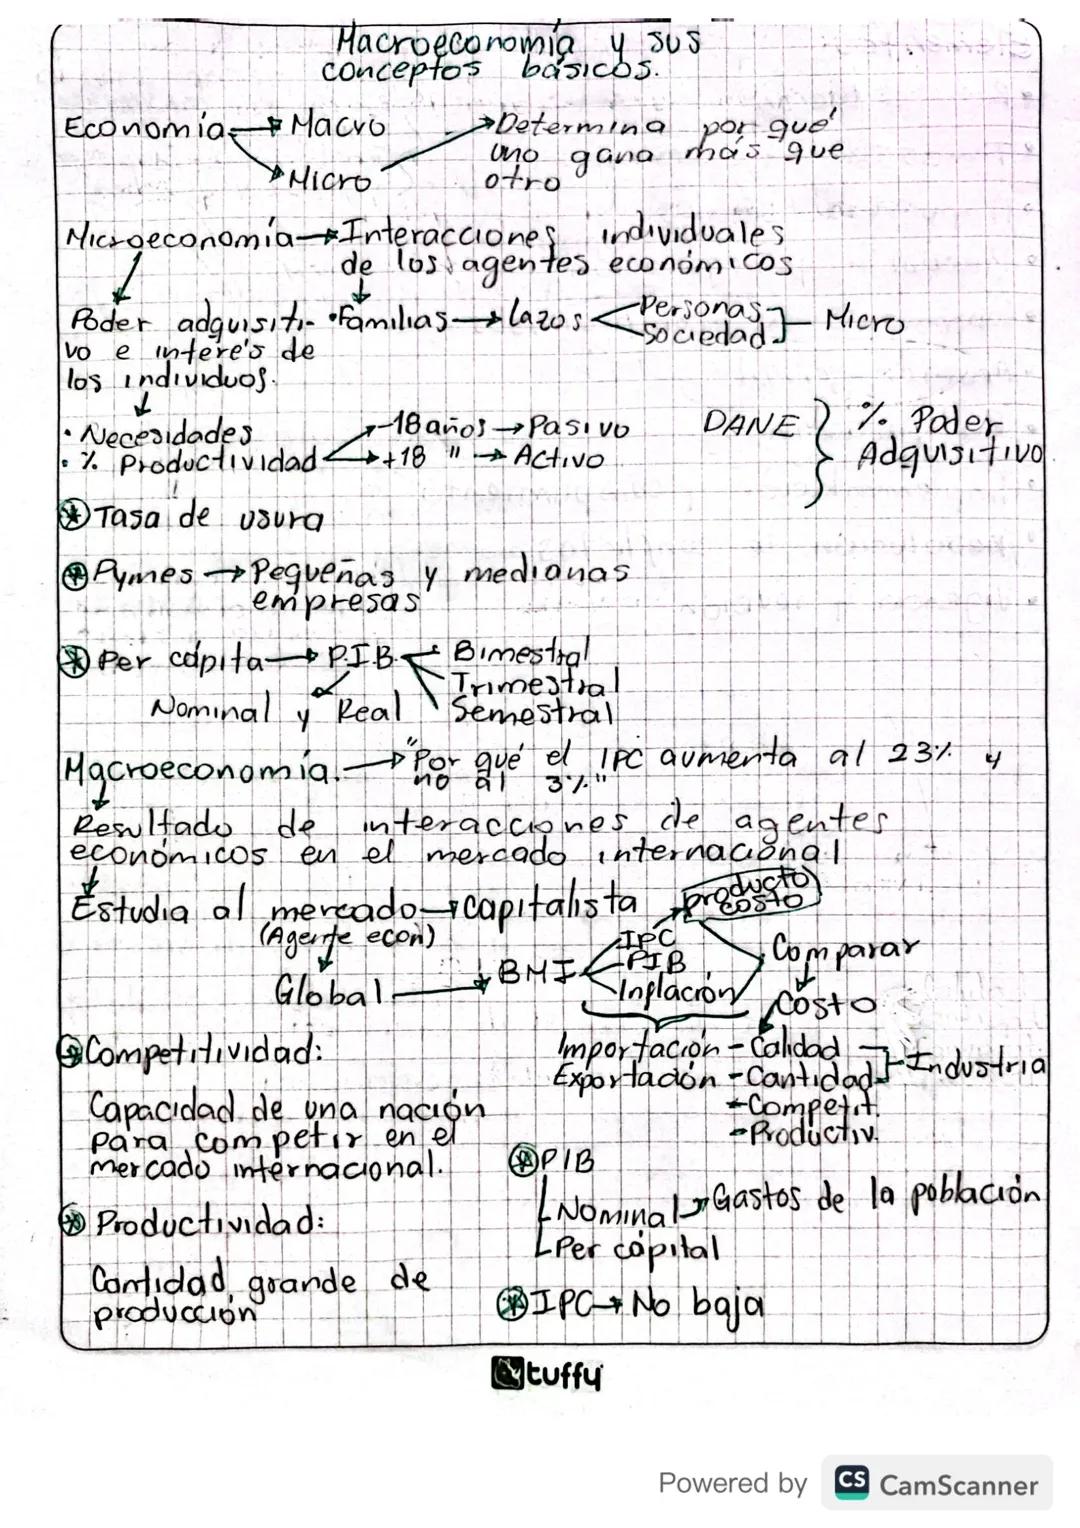 Macroeconomía y sus
conceptos básicos.
Economía → Macro
→ Micro
→ Determina por qué
uno gana más que
otro
Microeconomía → Interacciones individuales
de los agentes económicos
Poder adquisiti-
vo e interés de
los individuos.
• Familias → Lazos
Personas
Sociedad
Micro
• Necesidades
• % Productividad
-18 años → Pasivo
+18 " → Activo
DANE
% Poder
Adquisitivo
Tasa de usura
Pymes → Pequeñas y medianas
empresas
Per cápita → P.I.B.
Bimestral
Trimestral
Semestral
Nominal y Real
Macroeconomía. → "Por qué el IPC aumenta al 23% y
no al 3%"
Resultado de interacciones de agentes
económicos en el mercado internacional
Estudia al mercado → capitalista
(Agente econ)
Global → BMI
producto
costo
IPC
PIB
Inflación
Comparar
Costo
Importación - Calidad
Exportación - Cantidad
- Competit.
- Productiv.
Industria
Competitividad:
Capacidad de una nación
para competir en el
mercado internacional.
Productividad:
Cantidad grande de
producción
PIB
Nominal → Gastos de la población
Per cápital
IPC → No baja
tuffy
Powered by CS CamScanner